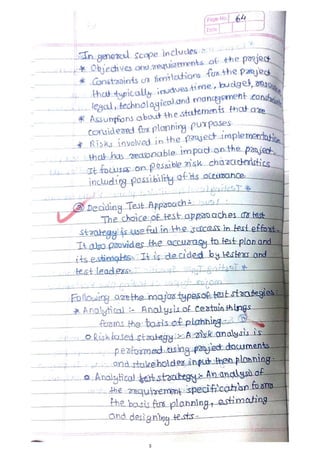 Page No. 64
Date
In general scope includes :-
* Objectives and requirements of the project
* Constraints or limitations for the project
that typically involves time, budget,
legal, technological and management
* Assumptions about the statements that are
considered for planning purposes
* Risks involved in the project implementation
that has reasonable impact on the project.
It focuses on possible risk characteristics
including possibility of its occurance
Deciding Test Approach :-
The choice of test approaches or test
strategy is useful in the success in test effort.
It also provides the accuracy to test plan and
its estimates. It is decided by testers and
test leaders.
Following are the major types of test strategies:
* Analytical :- Analysis of certain things
forms the basis of planning.
o Risk based strategy :- A risk analysis is
performed using project documents
and stakeholder input then planning.
o Analytical test strategy :- An analysis of
the requirement specification forms
the basis for planning, estimating
and designing tests.